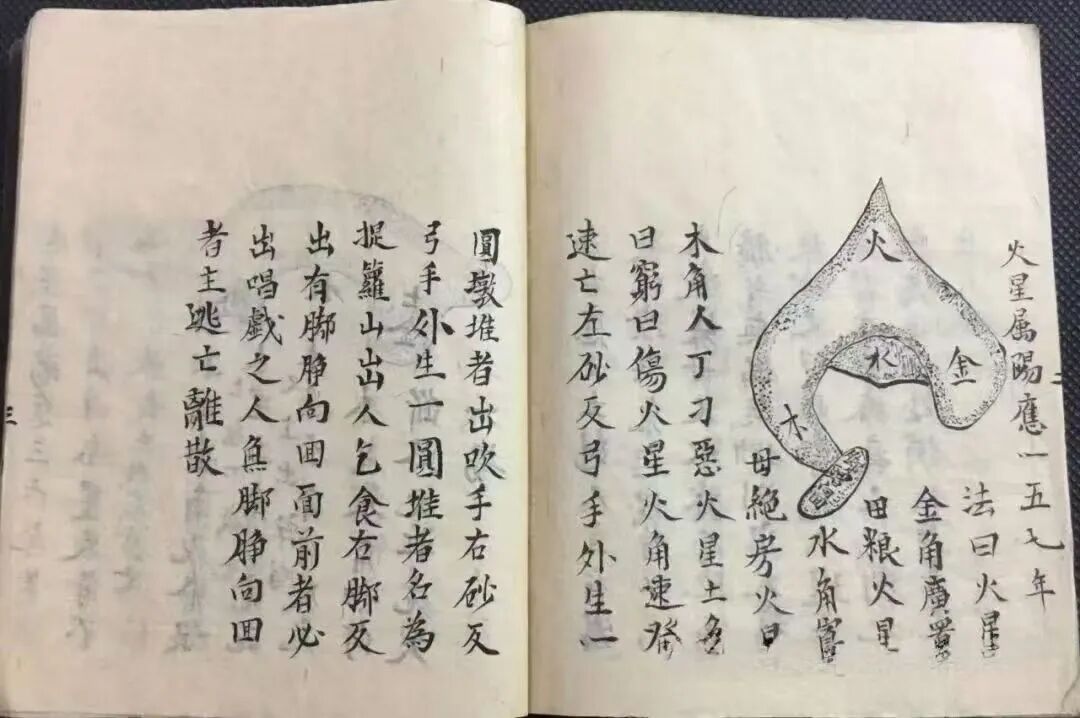 火星属賜應一五七年
二
法曰火星
金角廣置
田粮火星
水角寡
母絕房火曰
木角人丁刁惡火星土角
曰窮曰傷火星火角速發
速亡左砂反弓手外生一
火
水
金
木
圓墩堆者出吹手右砂反
弓手外生一圓堆者名為
捉籮山出人乞食右脚反
出有脚睁向囬面前者必
出唱戲之人無脚睁向囬
者主逃亡離散
三